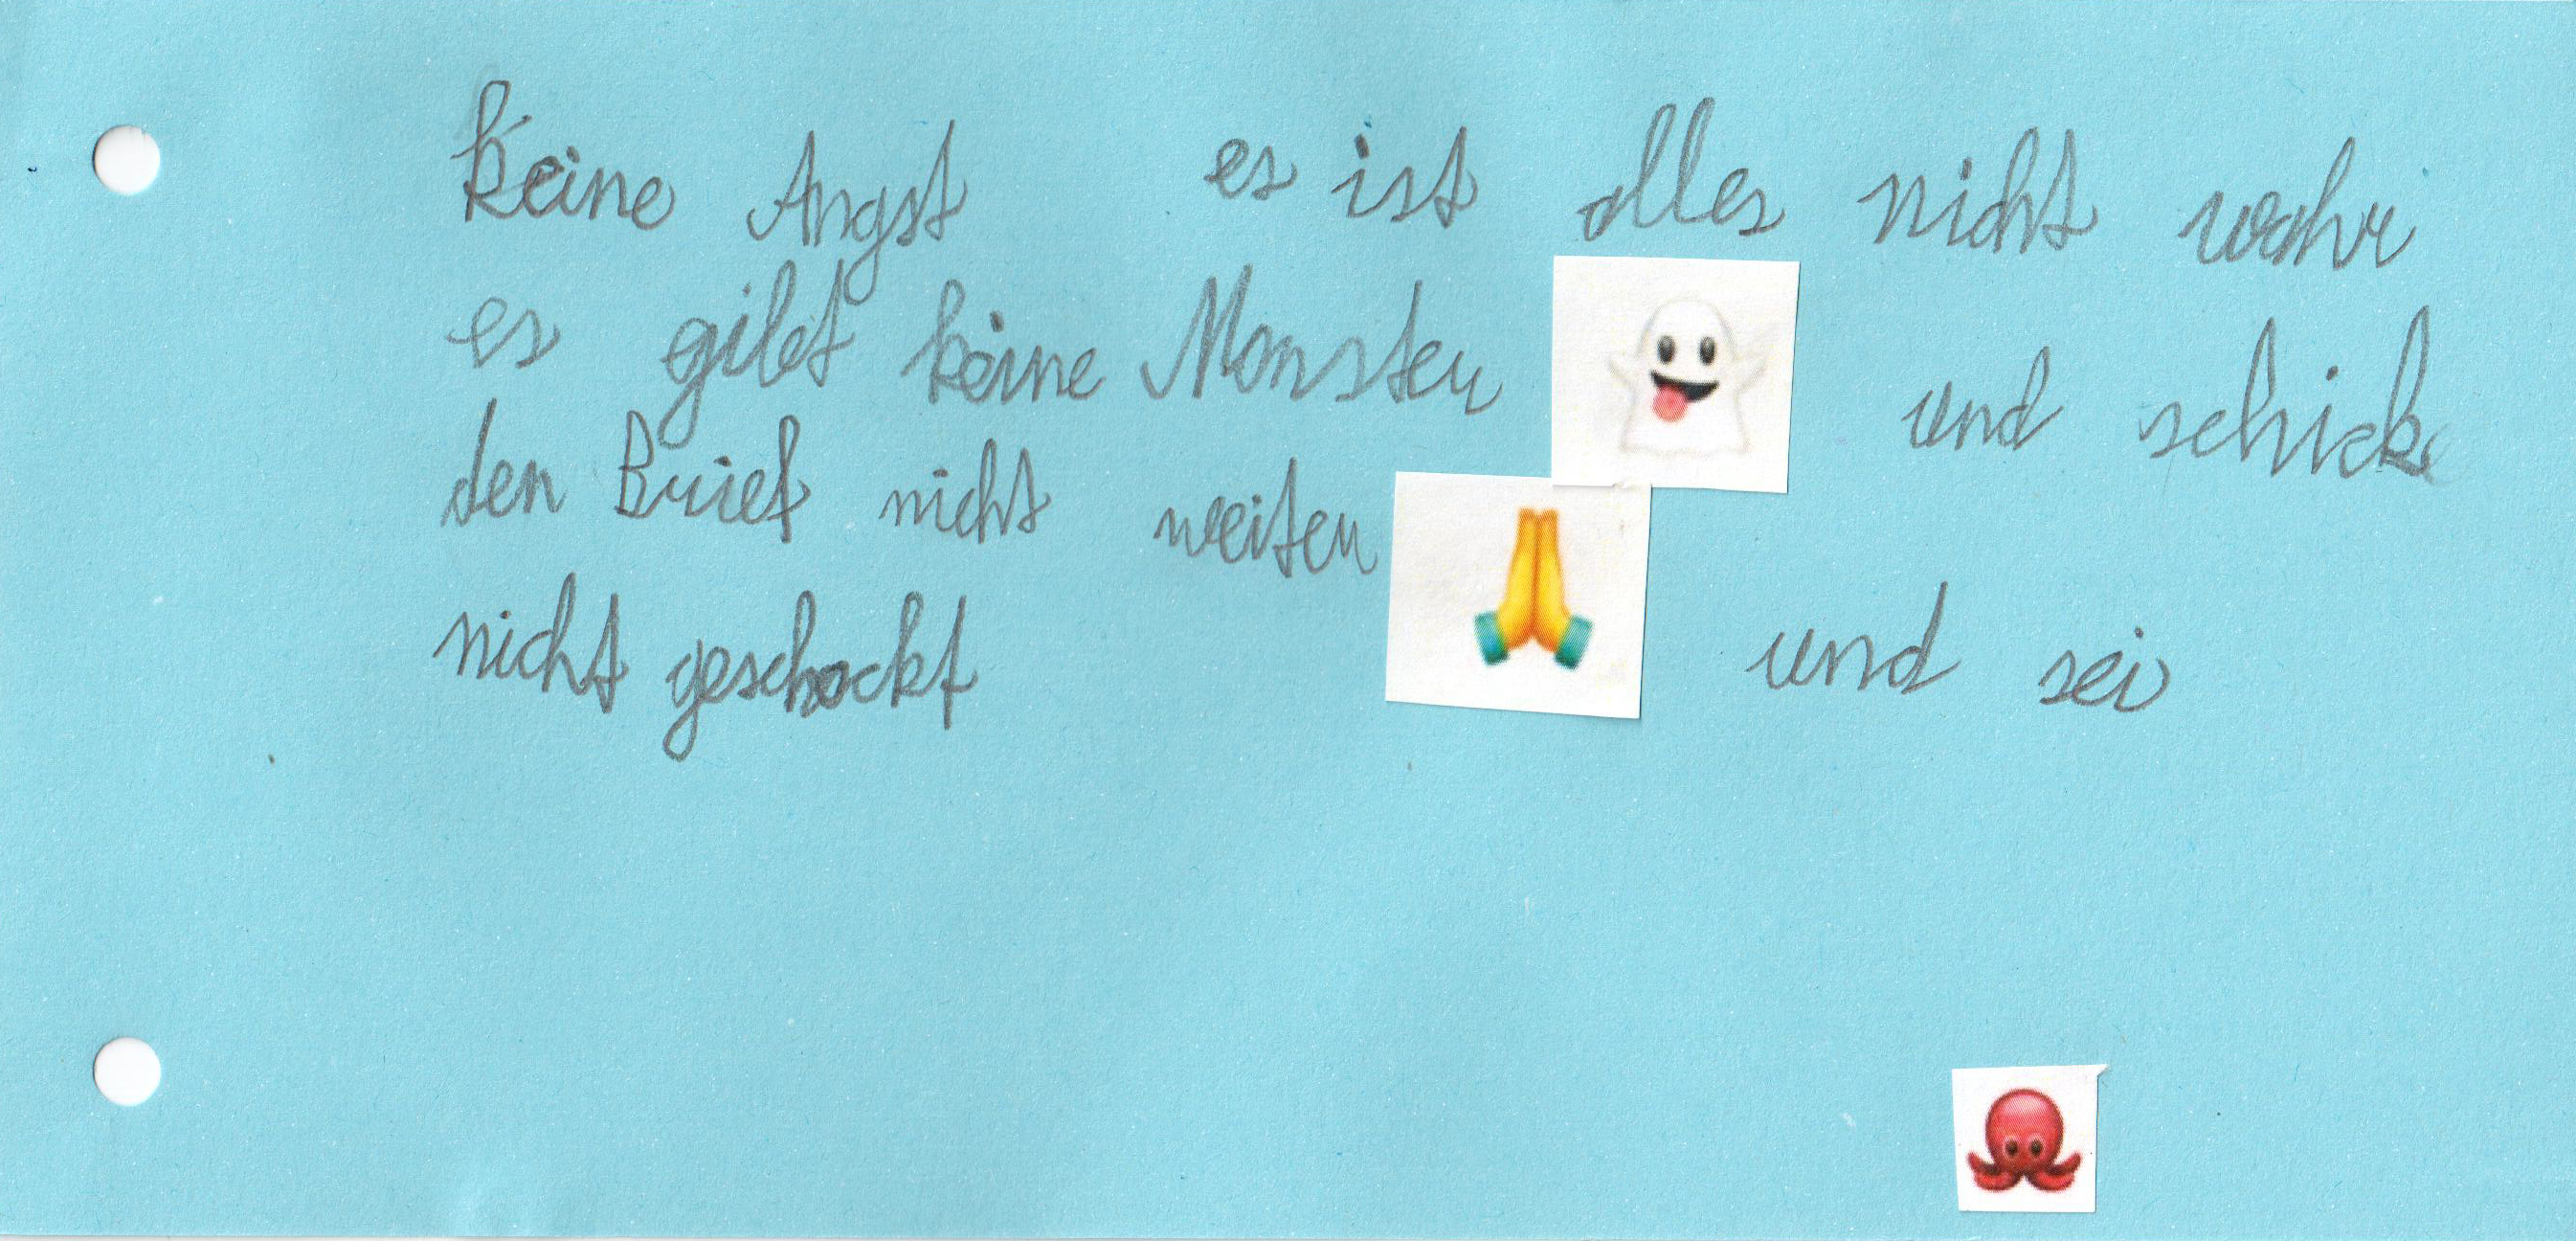 keine Angst es ist alles nicht wahr
es gibt keine Monster 👻 und schick
den Brief nicht weiter 🙏 und sei
nicht geschockt